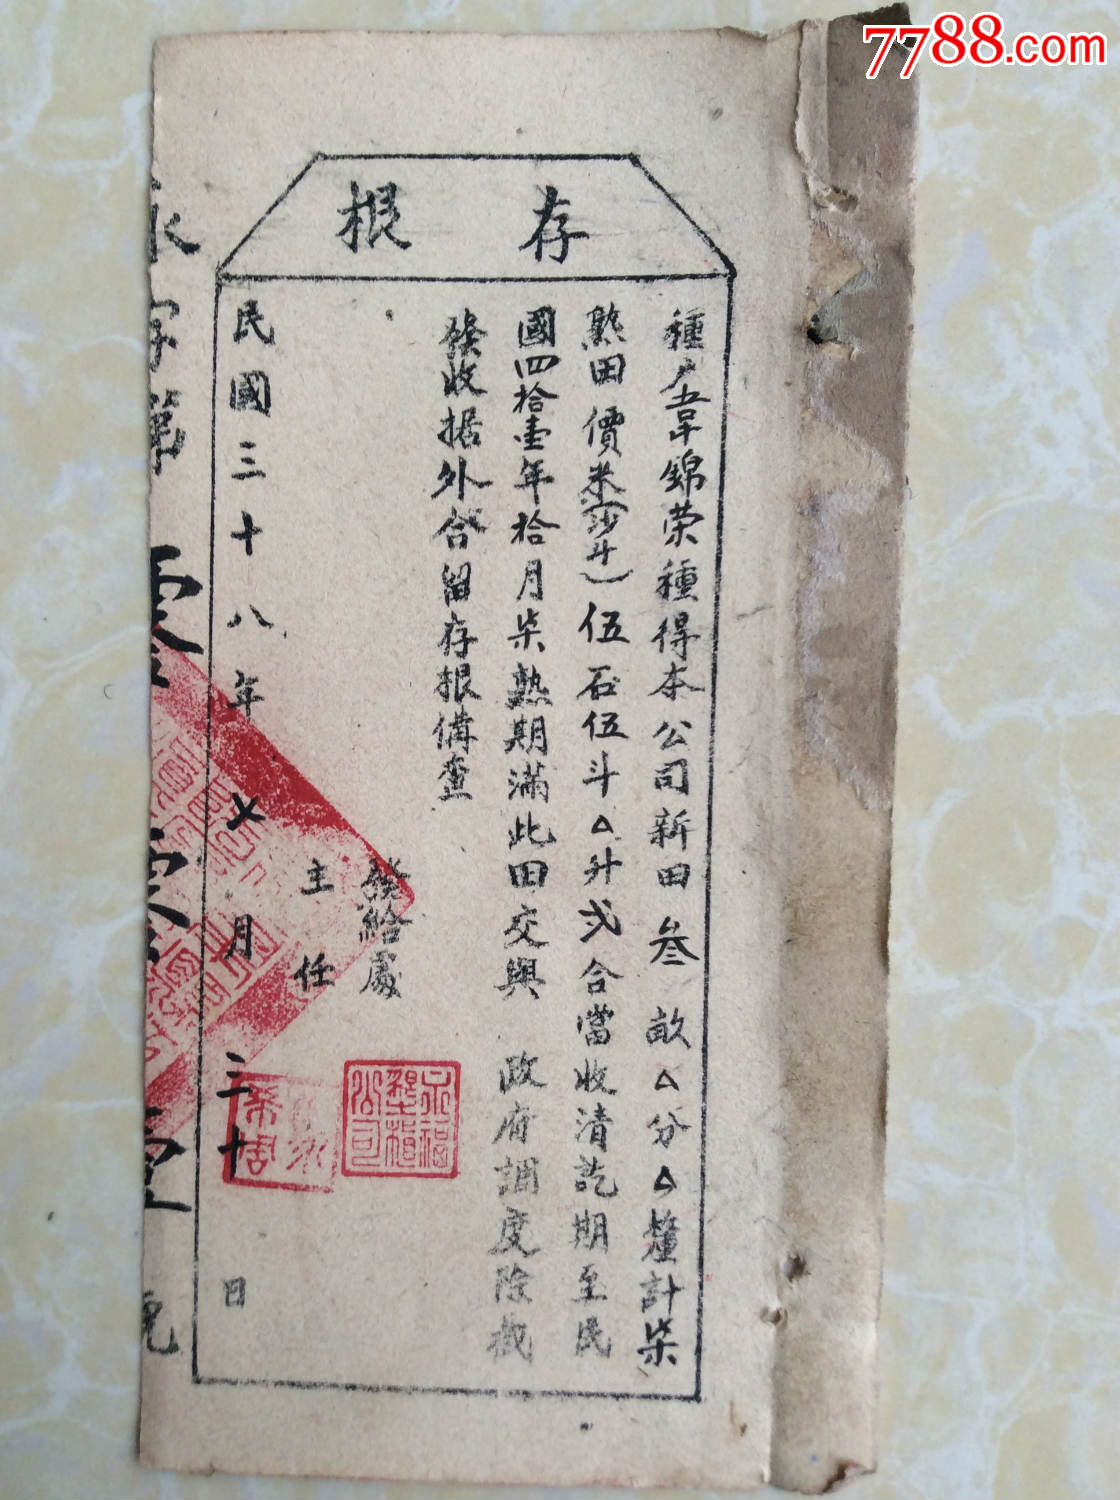 7788.com
存根
種戶韋錦荣種得本公司新田叁畝△分△釐計柒
熟田價米(沙斗)伍石伍斗△升弍合當收清訖期至民
國四拾壹年拾月柒熟期滿此田交與 政府調度除截
發收据外合留存根備查
發給處
主任
民國三十八年乂月三十日
永福墾植公司
字第零零壹號